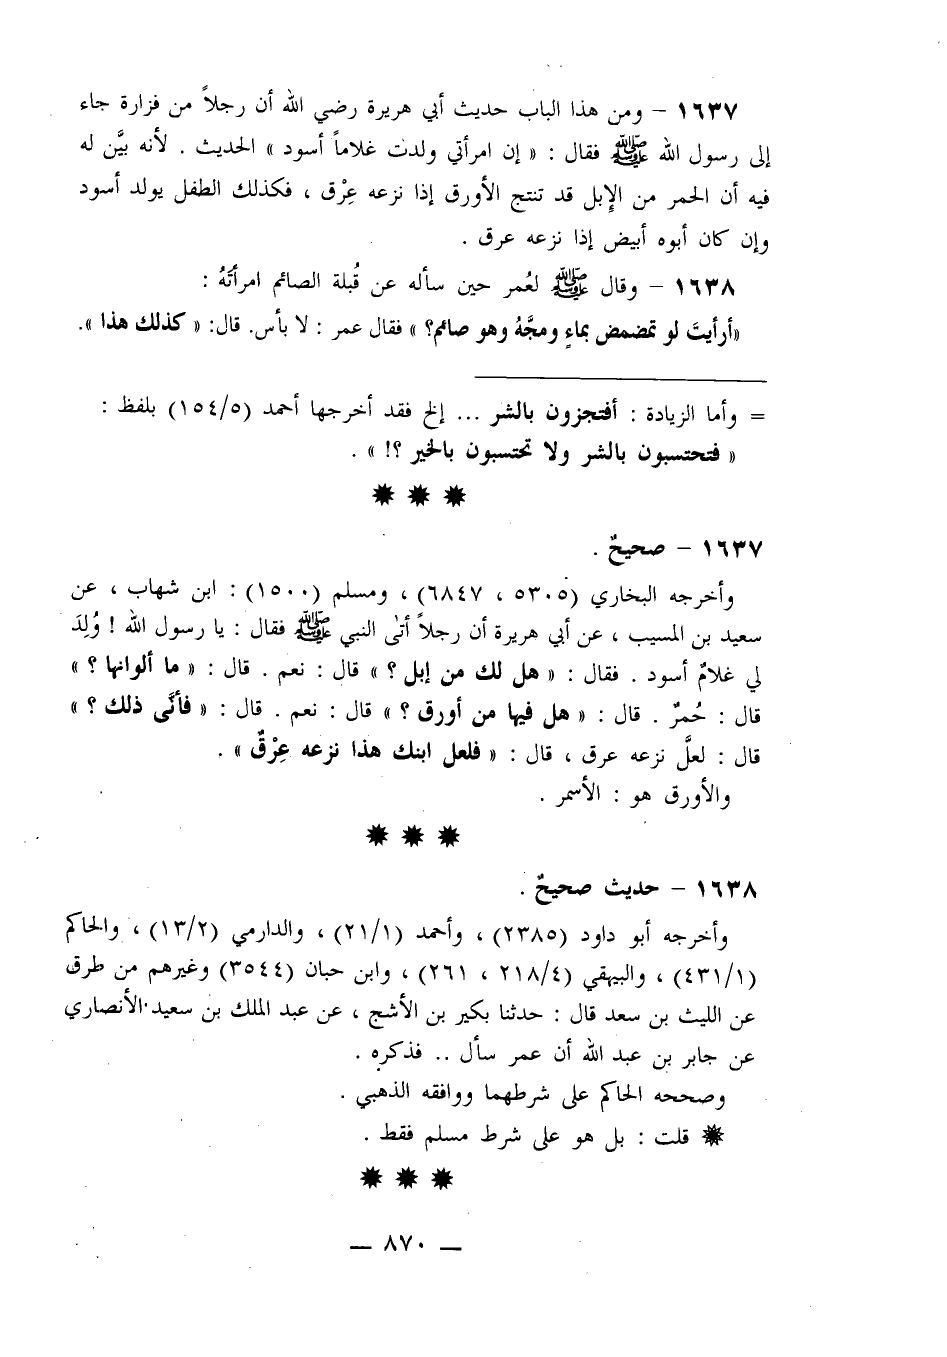 ١٦٣٧ – ومن هذا الباب حديث أبي هريرة رضي الله أن رجلاً من فزارة جاء
إلى رسول الله ﷺ فقال : « إن امرأتي ولدت غلاماً أسود » الحديث . لأنه بيَّن له
فيه أن الحمر من الإبل قد تنتج الأورق إذا نزعه عِرْق ، فكذلك الطفل يولد أسود
وإن كان أبوه أبيض إذا نزعه عرق .
١٦٣٨ – وقال ﷺ لعُمر حين سأله عن قُبلة الصائم امرأتَهُ :
«أرأيتَ لو تمضمض بماءٍ ومجَّهُ وهو صائم؟ » فقال عمر : لا بأس. قال: « كذلك هذا ».
= وأما الزيادة : أفتجزون بالشر ... إلخ فقد أخرجها أحمد (١٥٤/٥) بلفظ :
« فتحتسبون بالشر ولا تحتسبون بالخير ؟! » .
١٦٣٧ – صحيحٌ .
وأخرجه البخاري (٥٣٠٥ ، ٦٨٤٧) ، ومسلم (١٥٠٠) : ابن شهاب ، عن
سعيد بن المسيب ، عن أبي هريرة أن رجلاً أتى النبي ﷺ فقال : يا رسول الله ! وُلِدَ
لي غلامٌ أسود . فقال : « هل لك من إبل ؟ » قال : نعم . قال : « ما ألوانها ؟ »
قال : حُمرٌ . قال : « هل فيها من أورق ؟ » قال : نعم . قال : « فأنَّى ذلك ؟ »
قال : لعلَّ نزعه عرق ، قال : « فلعل ابنك هذا نزعه عِرْقٌ » .
والأورق هو : الأسمر .
١٦٣٨ – حديث صحيحٌ .
وأخرجه أبو داود (٢٣٨٥) ، وأحمد (٢١/١) ، والدارمي (١٣/٢) ، والحاكم
(٤٣١/١) ، والبيهقي (٢١٨/٤ ، ٢٦١) ، وابن حبان (٣٥٤٤) وغيرهم من طرق
عن الليث بن سعد قال : حدثنا بكير بن الأشج ، عن عبد الملك بن سعيد الأنصاري
عن جابر بن عبد الله أن عمر سأل .. فذكره .
وصححه الحاكم على شرطهما ووافقه الذهبي .
قلت : بل هو على شرط مسلم فقط .
— ٨٧٠ —